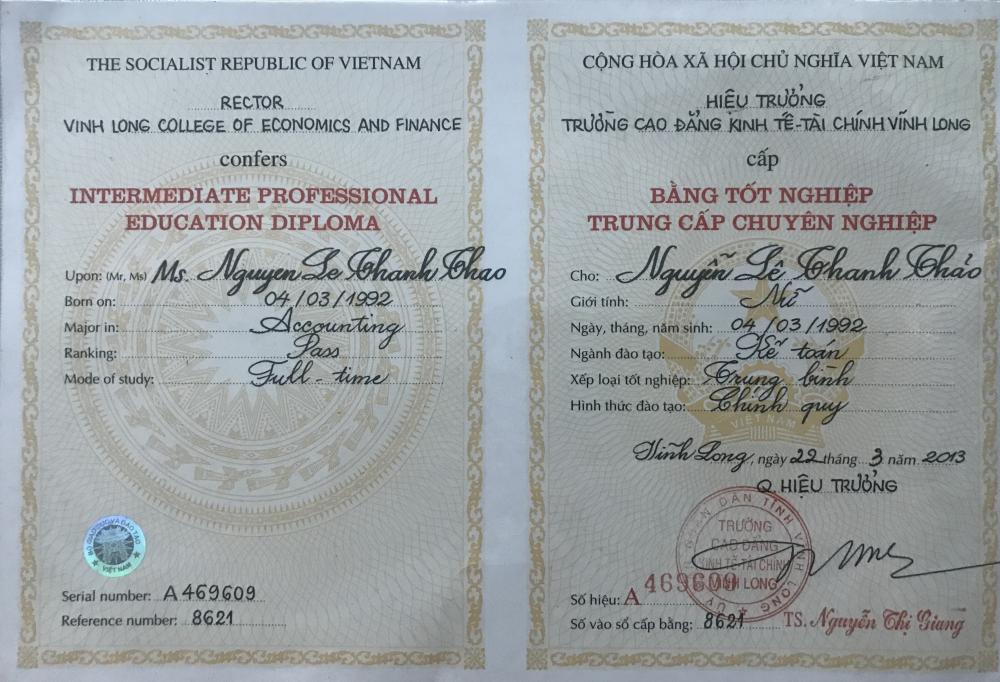 THE SOCIALIST REPUBLIC OF VIETNAM
RECTOR
VINH LONG COLLEGE OF ECONOMICS AND FINANCE
confers
INTERMEDIATE PROFESSIONAL
EDUCATION DIPLOMA
Upon: (Mr, Ms) Ms. Nguyen Le Thanh Thao
Born on: 04/03/1992
Major in: Accounting
Ranking: Pass
Mode of study: Full-time
BỘ GIÁO DỤC VÀ ĐÀO TẠO
VIỆT NAM
Serial number: A469609
Reference number: 8621
CỘNG HÒA XÃ HỘI CHỦ NGHĨA VIỆT NAM
HIỆU TRƯỞNG
TRƯỜNG CAO ĐẲNG KINH TẾ-TÀI CHÍNH VĨNH LONG
cấp
BẰNG TỐT NGHIỆP
TRUNG CẤP CHUYÊN NGHIỆP
Cho: Nguyễn Lê Thanh Thảo
Giới tính: Nữ
Ngày, tháng, năm sinh: 04/03/1992
Ngành đào tạo: Kế toán
Xếp loại tốt nghiệp: Trung bình
Hình thức đào tạo: Chính quy
VIỆT NAM
Vĩnh Long, ngày 22 tháng 3 năm 2013
Q. HIỆU TRƯỞNG
DÂN TỈNH VĨNH LONG
TRƯỜNG
CAO ĐẲNG
KINH TẾ-TÀI CHÍNH
VĨNH LONG
Số hiệu: A 469609
Số vào sổ cấp bằng: 8621
TS. Nguyễn Thị Giang